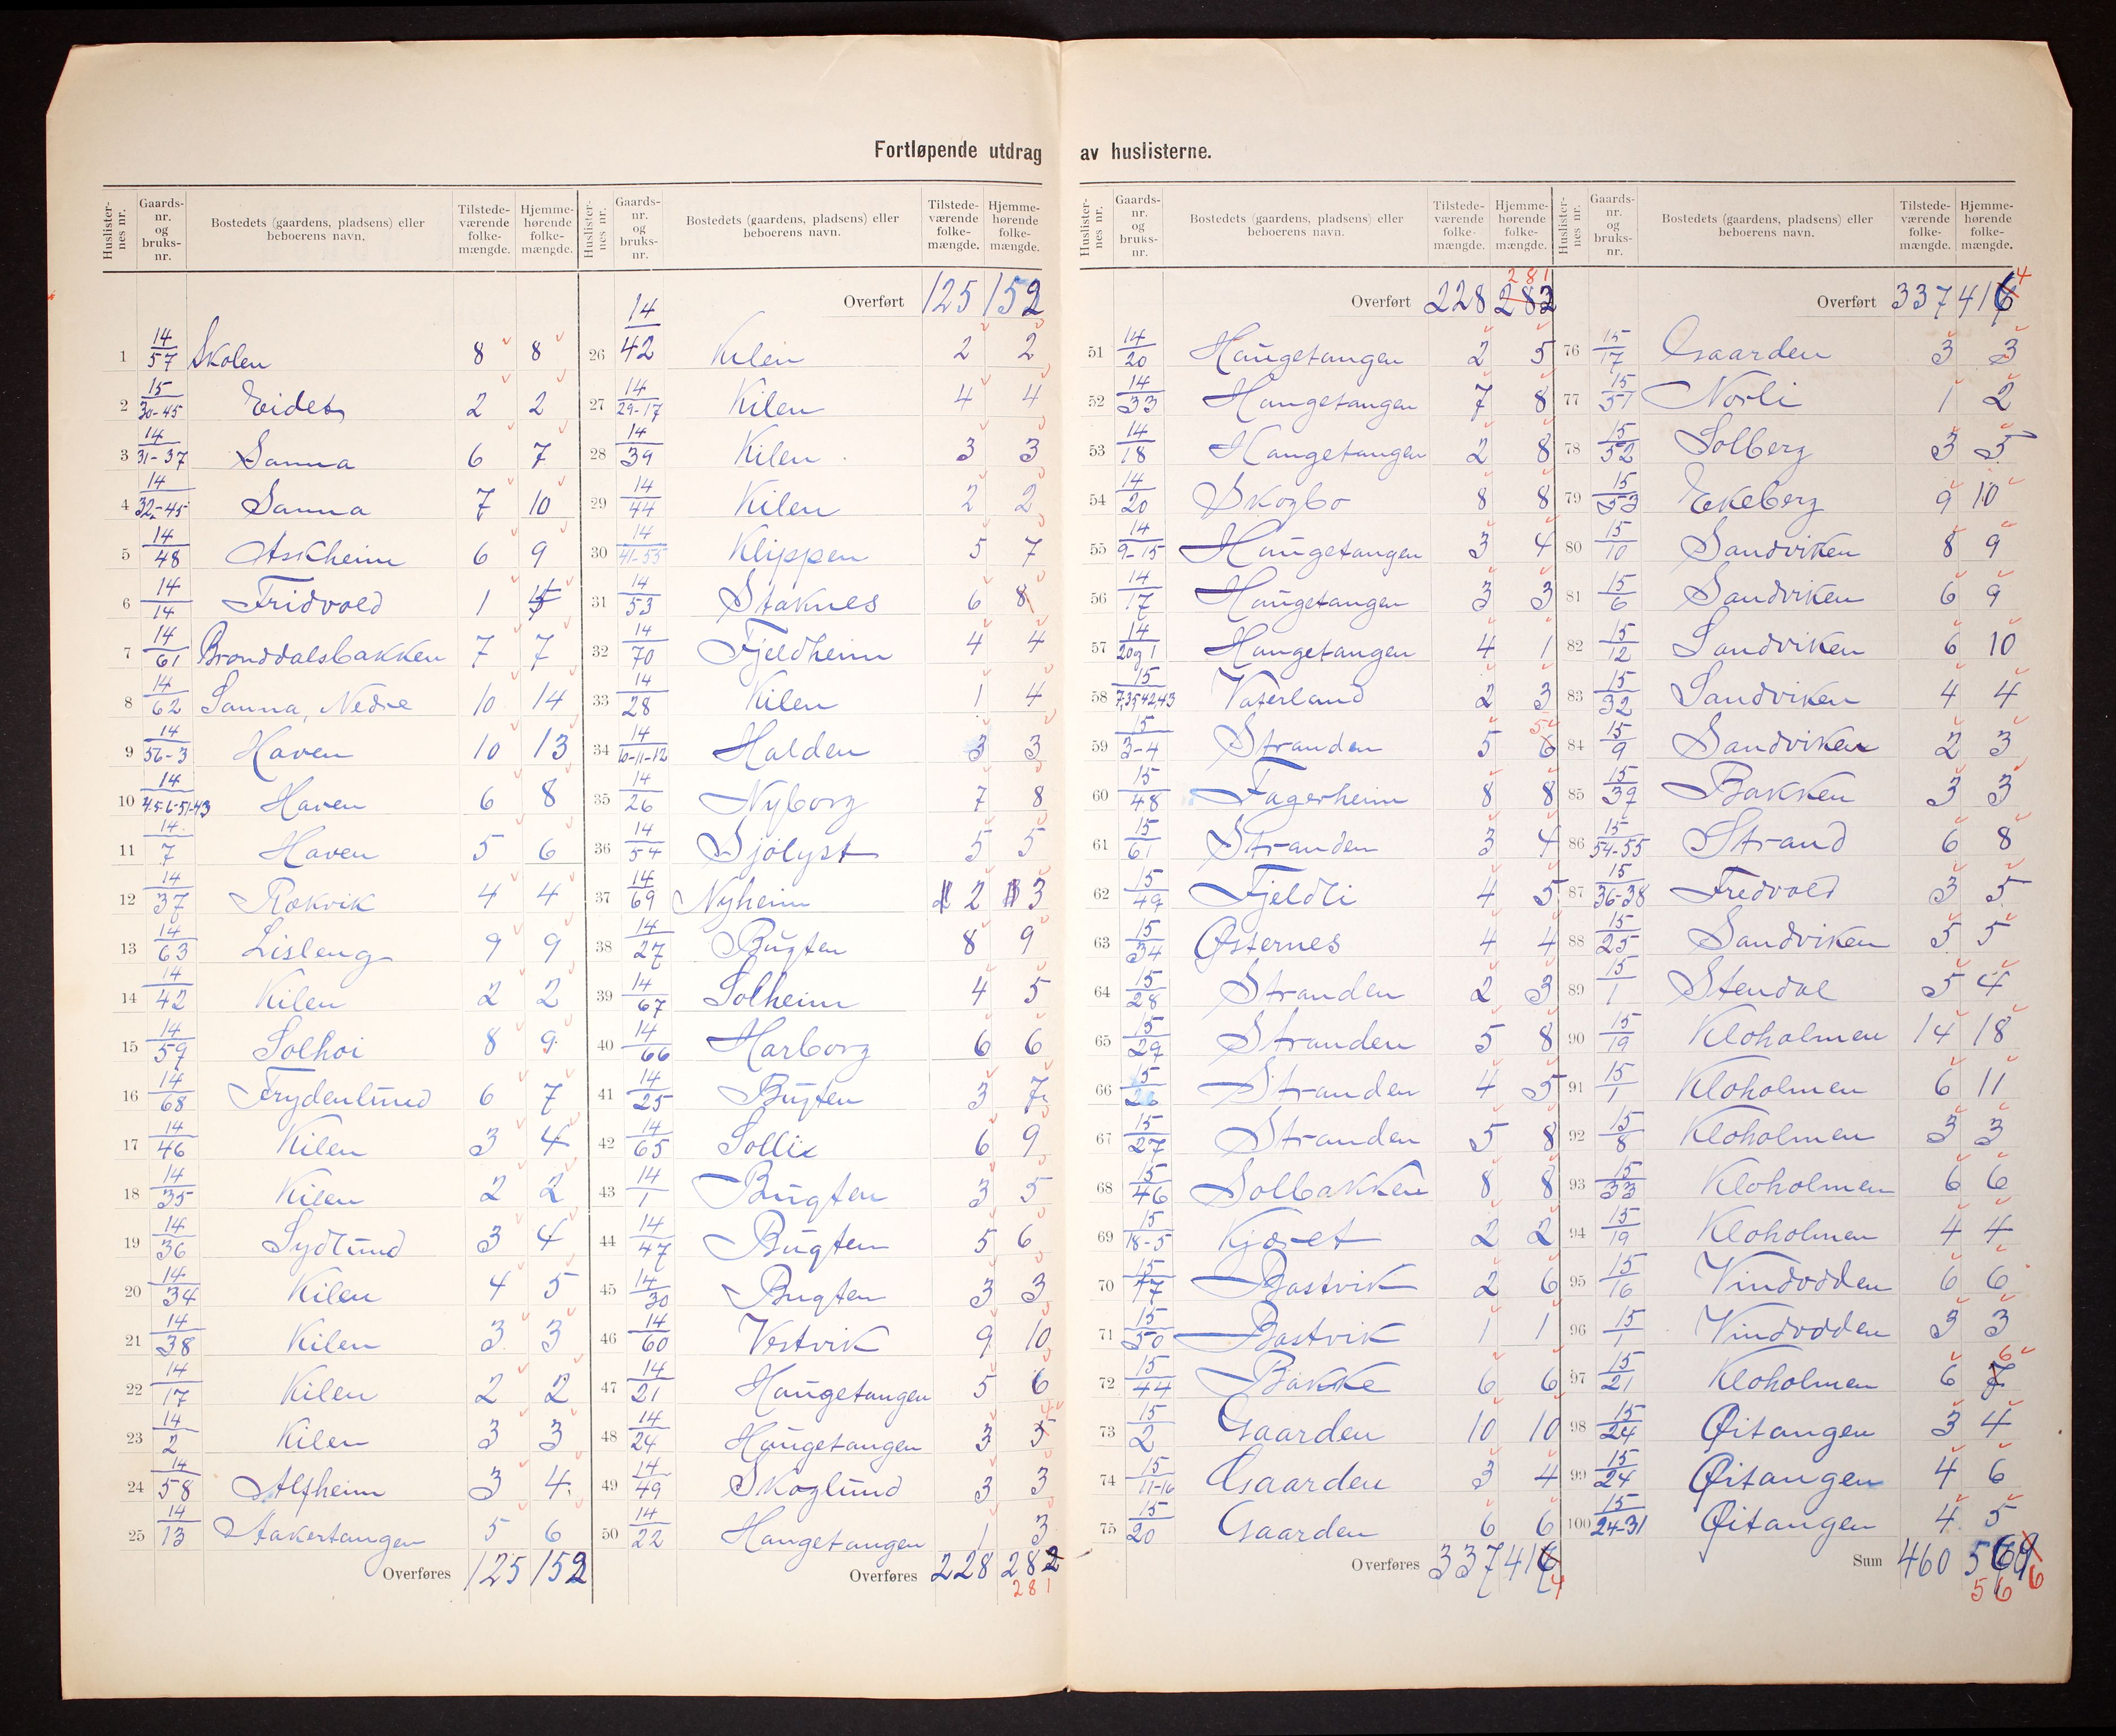 Fortløpende utdrag av huslisterne.
Huslister-nes nr. | Gaards-nr. og bruks-nr. | Bostedets (gaardens, pladsens) eller beboerens navn. | Tilstede-værende folke-mængde. | Hjemme-hørende folke-mængde.
1 14/57 Skolen 8 8
2 15/30-45 Eidet 2 2
3 14/31-37 Sanna 6 7
4 14/32-45 Sanna 7 10
5 14/48 Askheim 6 9
6 14/14 Fridvold 1
7 14/61 Bronddalsbakken 7 7
8 14/62 Sanna, Nedre 10 14
9 14/56-3 Haven 10 13
10 14/4-5-6-51-43 Haven 6 8
11 14/7 Haven 5 6
12 14/37 Rokvik 4 4
13 14/63 Lisleng 9 9
14 14/42 Kilen 2 2
15 14/59 Solhoi 8 9
16 14/68 Frydenlund 6 7
17 14/46 Kilen 3 4
18 14/35 Kilen 2 2
19 14/36 Sydlund 3 4
20 14/34 Kilen 4 5
21 14/38 Kilen 3 3
22 14/17 Kilen 2 2
23 14/2 Kilen 3 3
24 14/58 Alfheim 3 4
25 14/13 Stakertangen 5 6
Overføres 125 152
Huslister-nes nr. | Gaards-nr. og bruks-nr. | Bostedets (gaardens, pladsens) eller beboerens navn. | Tilstede-værende folke-mængde. | Hjemme-hørende folke-mængde.
Overført 125 152
26 14/42 Kilen 2 2
27 14/29-17 Kilen 4 4
28 14/39 Kilen 3 3
29 14/44 Kilen 2 2
30 14/41-55 Klippen 5 7
31 14/53 Staknes 6 8
32 14/70 Fjeldheim 4 4
33 14/28 Kilen 1 4
34 14/10-11-12 Halden 3 3
35 14/26 Nyborg 7 8
36 14/54 Sjølyst 5 5
37 14/69 Nyheim 2 3
38 14/27 Bugten 8 9
39 14/67 Solheim 4 5
40 14/66 Harborg 6 6
41 14/25 Bugten 3 7
42 14/65 Sollie 6 9
43 14/1 Bugten 3 5
44 14/47 Bugten 5 6
45 14/30 Bugten 3 3
46 14/60 Vestvik 9 10
47 14/21 Haugetangen 5 6
48 14/24 Haugetangen 3
49 14/49 Skoglund 3 3
50 14/22 Haugetangen 1 3
Overføres 228 282
281
Huslister-nes nr. | Gaards-nr. og bruks-nr. | Bostedets (gaardens, pladsens) eller beboerens navn. | Tilstede-værende folke-mængde. | Hjemme-hørende folke-mængde.
281
Overført 228 282
51 14/20 Haugetangen 2 5
52 14/33 Haugetangen 7 8
53 14/18 Haugetangen 2 8
54 14/20 Skogbo 8 8
55 14/9-15 Haugetangen 3 4
56 14/17 Haugetangen 3 3
57 14/20 og 1 Haugetangen 4 1
58 15/7,35,42,43 Vaterland 2 3
59 15/3-4 Stranden 5 6 5
60 15/48 Fagerheim 8 8
61 15/61 Stranden 3 4
62 15/49 Fjeldli 4 5
63 15/34 Østernes 4 4
64 15/28 Stranden 2 3
65 15/29 Stranden 5 8
66 15/26 Stranden 4 5
67 15/27 Stranden 5 8
68 15/46 Solbakken 8 8
69 15/18-5 Kjæret 2 2
70 15/17 Bastvik 2 6
71 15/50 Bastvik 1 1
72 15/44 Bakke 6 6
73 15/2 Gaarden 10 10
74 15/11-16 Gaarden 3 4
75 15/20 Gaarden 6 6
Overføres 337 416 4
Huslister-nes nr. | Gaards-nr. og bruks-nr. | Bostedets (gaardens, pladsens) eller beboerens navn. | Tilstede-værende folke-mængde. | Hjemme-hørende folke-mængde.
Overført 337 416 4
76 15/17 Gaarden 3 3
77 15/51 Norli 1 2
78 15/52 Solberg 3 5
79 15/53 Ekeberg 9 10
80 15/10 Sandviken 8 9
81 15/6 Sandviken 6 9
82 15/12 Sandviken 6 10
83 15/32 Sandviken 4 4
84 15/9 Sandviken 2 3
85 15/39 Bakken 3 3
86 15/54-55 Strand 6 8
87 15/36-38 Fredvold 3 5
88 15/25 Sandviken 5 5
89 15/1 Stendal 5 4
90 15/19 Kloholmen 14 18
91 15/1 Kloholmen 6 11
92 15/8 Kloholmen 3 3
93 15/33 Kloholmen 6 6
94 15/19 Kloholmen 4 4
95 15/16 Vindodden 6 6
96 15/1 Vindodden 3 3
97 15/21 Kloholmen 6 7 6
98 15/24 Øitangen 3 4
99 15/24 Øitangen 4 6
100 15/24-31 Øitangen 4 5
Sum 460
566